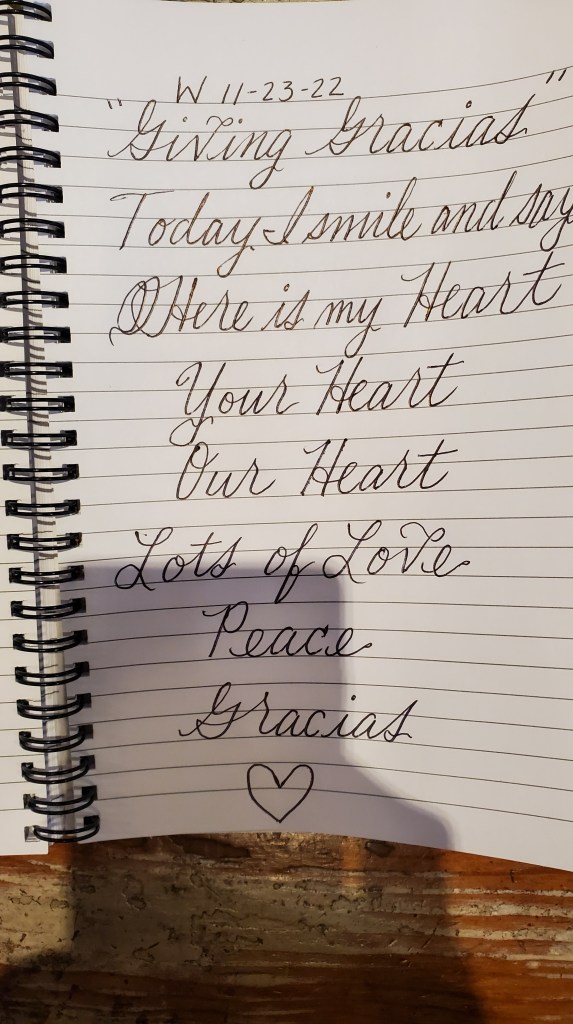 W 11-23-22
"Giving Gracias"
Today I smile and say
Here is my Heart
Your Heart
Our Heart
Lots of Love
Peace
Gracias